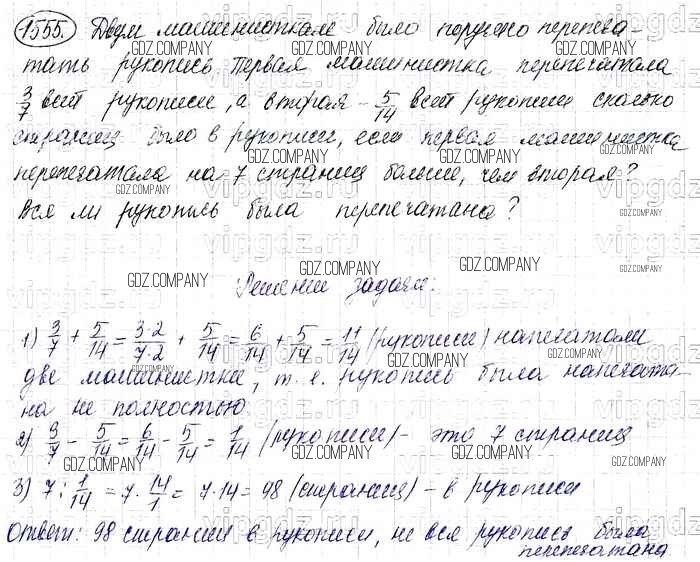 1555. Двум машинисткам было поручено перепеча-
тать рукопись Первая машинистка перепечатала
3/7 всей рукописи, а вторая - 5/14 всей рукописи сколько
страниц было в рукописи, если первая машинистка
перепечатала на 7 страниц больше, чем вторая?
Вся ли рукопись была перепечатана?
Решение задачи:
1) 3/7 + 5/14 = 3·2/7·2 + 5/14 = 6/14 + 5/14 = 11/14 (рукописи) напечатали
две машинистки, т. е. рукопись была напечата-
на не полностью
2) 3/7 - 5/14 = 6/14 - 5/14 = 1/14 (рукописи) - это 7 страниц
3) 7 : 1/14 = 7 · 14/1 = 7·14 = 98 (страниц) - в рукописи
Ответ: 98 страниц в рукописи, не вся рукопись была
перепечатана
GDZ.COMPANY
vipgdz.ru